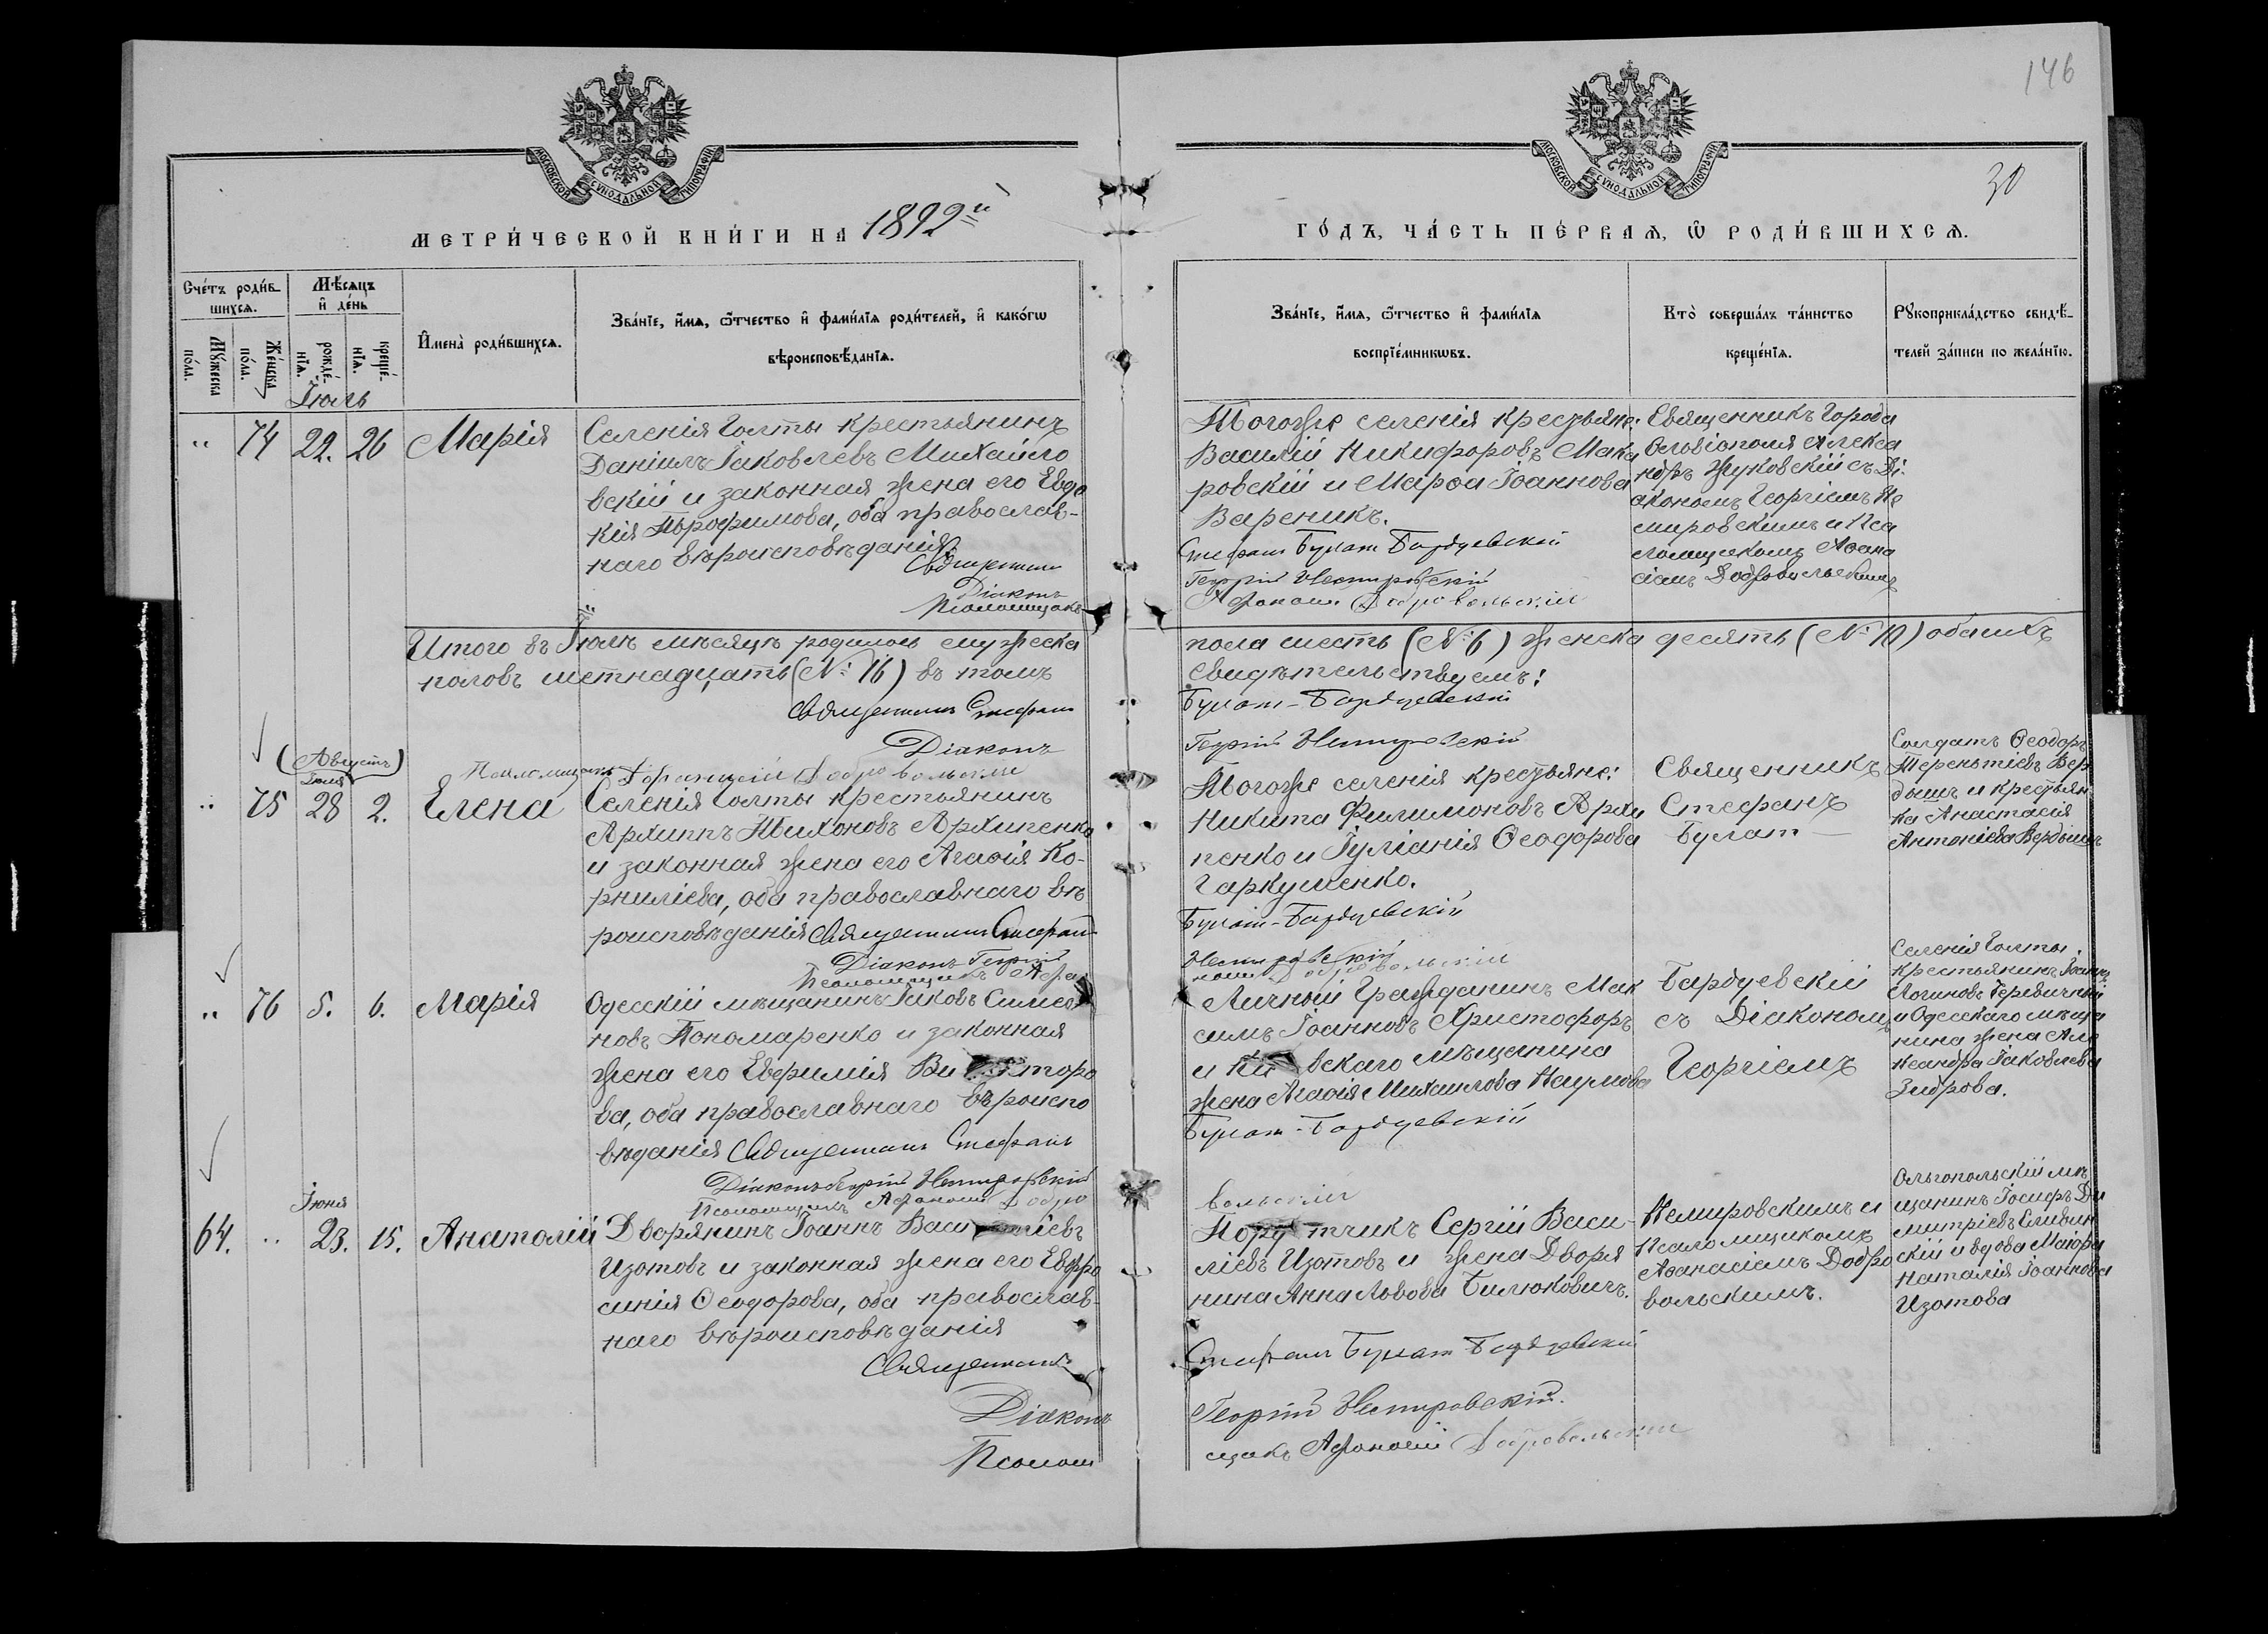 146
30
МОСКОВСКОЙ СѴНОДАЛЬНОЙ ТИПОГРАФІИ
МОСКОВСКОЙ СѴНОДАЛЬНОЙ ТИПОГРАФІИ
МЕТРИ́ЧЕСКОЙ КНИ́ГИ НА 1892й
ГО́ДЪ, ЧА́СТЬ ПЕ́РВАѦ, Ѿ РОДИ́ВШИХСѦ.
Сче́тъ роди́в-
шихсѧ.
Мꙋ́жеска по́ла.
Же́нска по́ла.
Мѣ́сѧцъ и де́нь
рожде́-нїѧ.
креще́-нїѧ.
И҆мена̀ роди́вшихсѧ.
Зва́нїе, и҆́мѧ, ѻ҆́тчество и҆ фами́лїѧ роди́телей, и҆ како́гѡ
вѣроисповѣ́данїѧ.
Зва́нїе, и҆́мѧ, ѻ҆́тчество и҆ фами́лїѧ
воспрїе́мникѡвъ.
Кто̀ соверша́лъ та́инство
креще́нїѧ.
Рꙋкоприкла́дство свидѣ́-
телей за́писи по жела́нїю.
Іюль
" 74 22. 26 Марія
Селенія Голты крестьянинъ
Даніилъ Іаковлевъ Михайло
вскій и законная жена его Евдо
кія Трофимова, оба православ-
наго вѣроисповѣданія.
Священникъ
Діаконъ
Псаломщикъ
Тогоже селенія крестьяне:
Василій Никифоровъ Мака
ровскій и Марѳа Іоаннова
Вареникъ.
Стефанъ Булат Бардуевскій
Георгій Немировскій
Афанасій Добровольскій
Священникъ города
Ольвіополя Алекса
ндръ Жуковскій съ Ді
акономъ Георгіемъ Не
мировскимъ и Пса
ломщикомъ Аѳана
сіемъ Добровольскимъ
Итого въ Іюлѣ мѣсяцѣ родилось мужеска
пола шесть (№ 6) женска десять (№ 10) обоихъ
половъ шестнадцать (№ 16) въ томъ
свидѣтельствуемъ:
Священникъ Стефанъ
Булат-Бардуевскій
Діаконъ
Георгій Немировскій
Псаломщикъ Афанасій Добровольскій
(Августъ)
Іюля
" 75 28 2. Елена
Селенія Голты крестьянинъ
Архиппъ Тихоновъ Архипенко
и законная жена его Агаѳія Ко-
рниліева, оба православнаго вѣ
роисповѣданія Священникъ Стефан
Діаконъ Георгій
Псаломщикъ Афа
Тогоже селенія крестьяне:
Никита Филимоновъ Архи
пенко и Іуліанія Ѳеодорова
Гаркушенко.
Булат-Бардуевскій
Немировскій
насій Добровольскій
Священникъ
Стефанъ
Булат —
Солдатъ Ѳеодоръ
Терентіевъ Вер
дышъ и крестьян
ка Анастасія
Антоніева Вердышъ
" 76 5. 6. Марія
Одесскій мѣщанинъ Іаковъ Симео
новъ Пономаренко и законная
жена его Евфимія Ви кторо
ва, оба православнаго вѣроиспо
вѣданія Священникъ Стефанъ
Діаконъ Георгій Немировскій
Псаломщикъ Афанасій Добро
Личный гражданинъ Мак
симъ Іоанновъ Христофоръ
и Ки вскаго мѣщанина
жена Агаѳія Михаилова Наумова
Булат-Бардуевскій
вольскій
Бардуевскій
съ Діакономъ
Георгіемъ
Селенія Голты
крестьянинъ Іоаннъ
Логиновъ
и Одесскаго мѣща
нина жена Але
ксандра Іаковлева
Зиброва.
Іюня
64. " 23. 15. Анатолій
Дворянинъ Іоаннъ Василіевъ
Изотовъ и законная жена его Евфро
синія Ѳеодорова, оба православ-
наго вѣроисповѣданія
Священникъ
Діаконъ
Псалом
Поручикъ Сергій Васи-
ліевъ Изотовъ и жена Дворя
нина Анна Львова Билюковичъ.
Стефанъ Булат Бардуевскій
Георгій Немировскій.
щикъ Афанасій Добровольскій
Немировскимъ и
Псаломщикомъ
Аѳанасіемъ Добро
вольскимъ.
Ольгопольскій мѣ
щанинъ Іосифъ Ди
митріевъ Сливин
скій и вдова Маіора
Наталія Іоаннова
Изотова